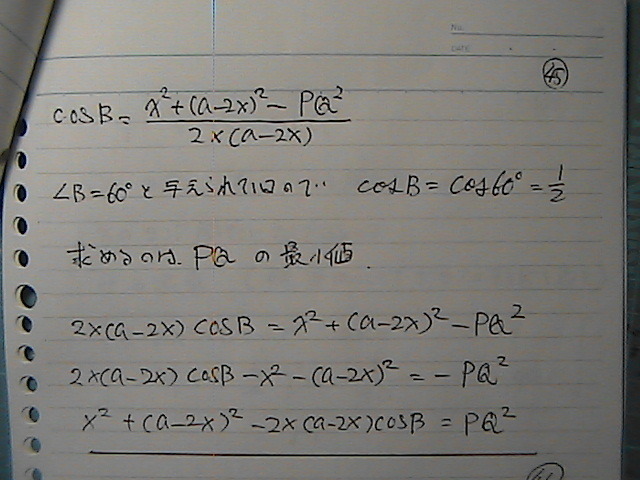 No.
DATE
45
cosB = x²+(a-2x)²-PQ² / 2x(a-2x)
∠B=60°と与えられているので‥ cosB = cos60° = 1/2
求めるのは、PQ の最小値.
2x(a-2x) cosB = x²+(a-2x)²-PQ²
2x(a-2x) cosB -x²-(a-2x)² = -PQ²
x²+(a-2x)²-2x(a-2x)cosB = PQ²